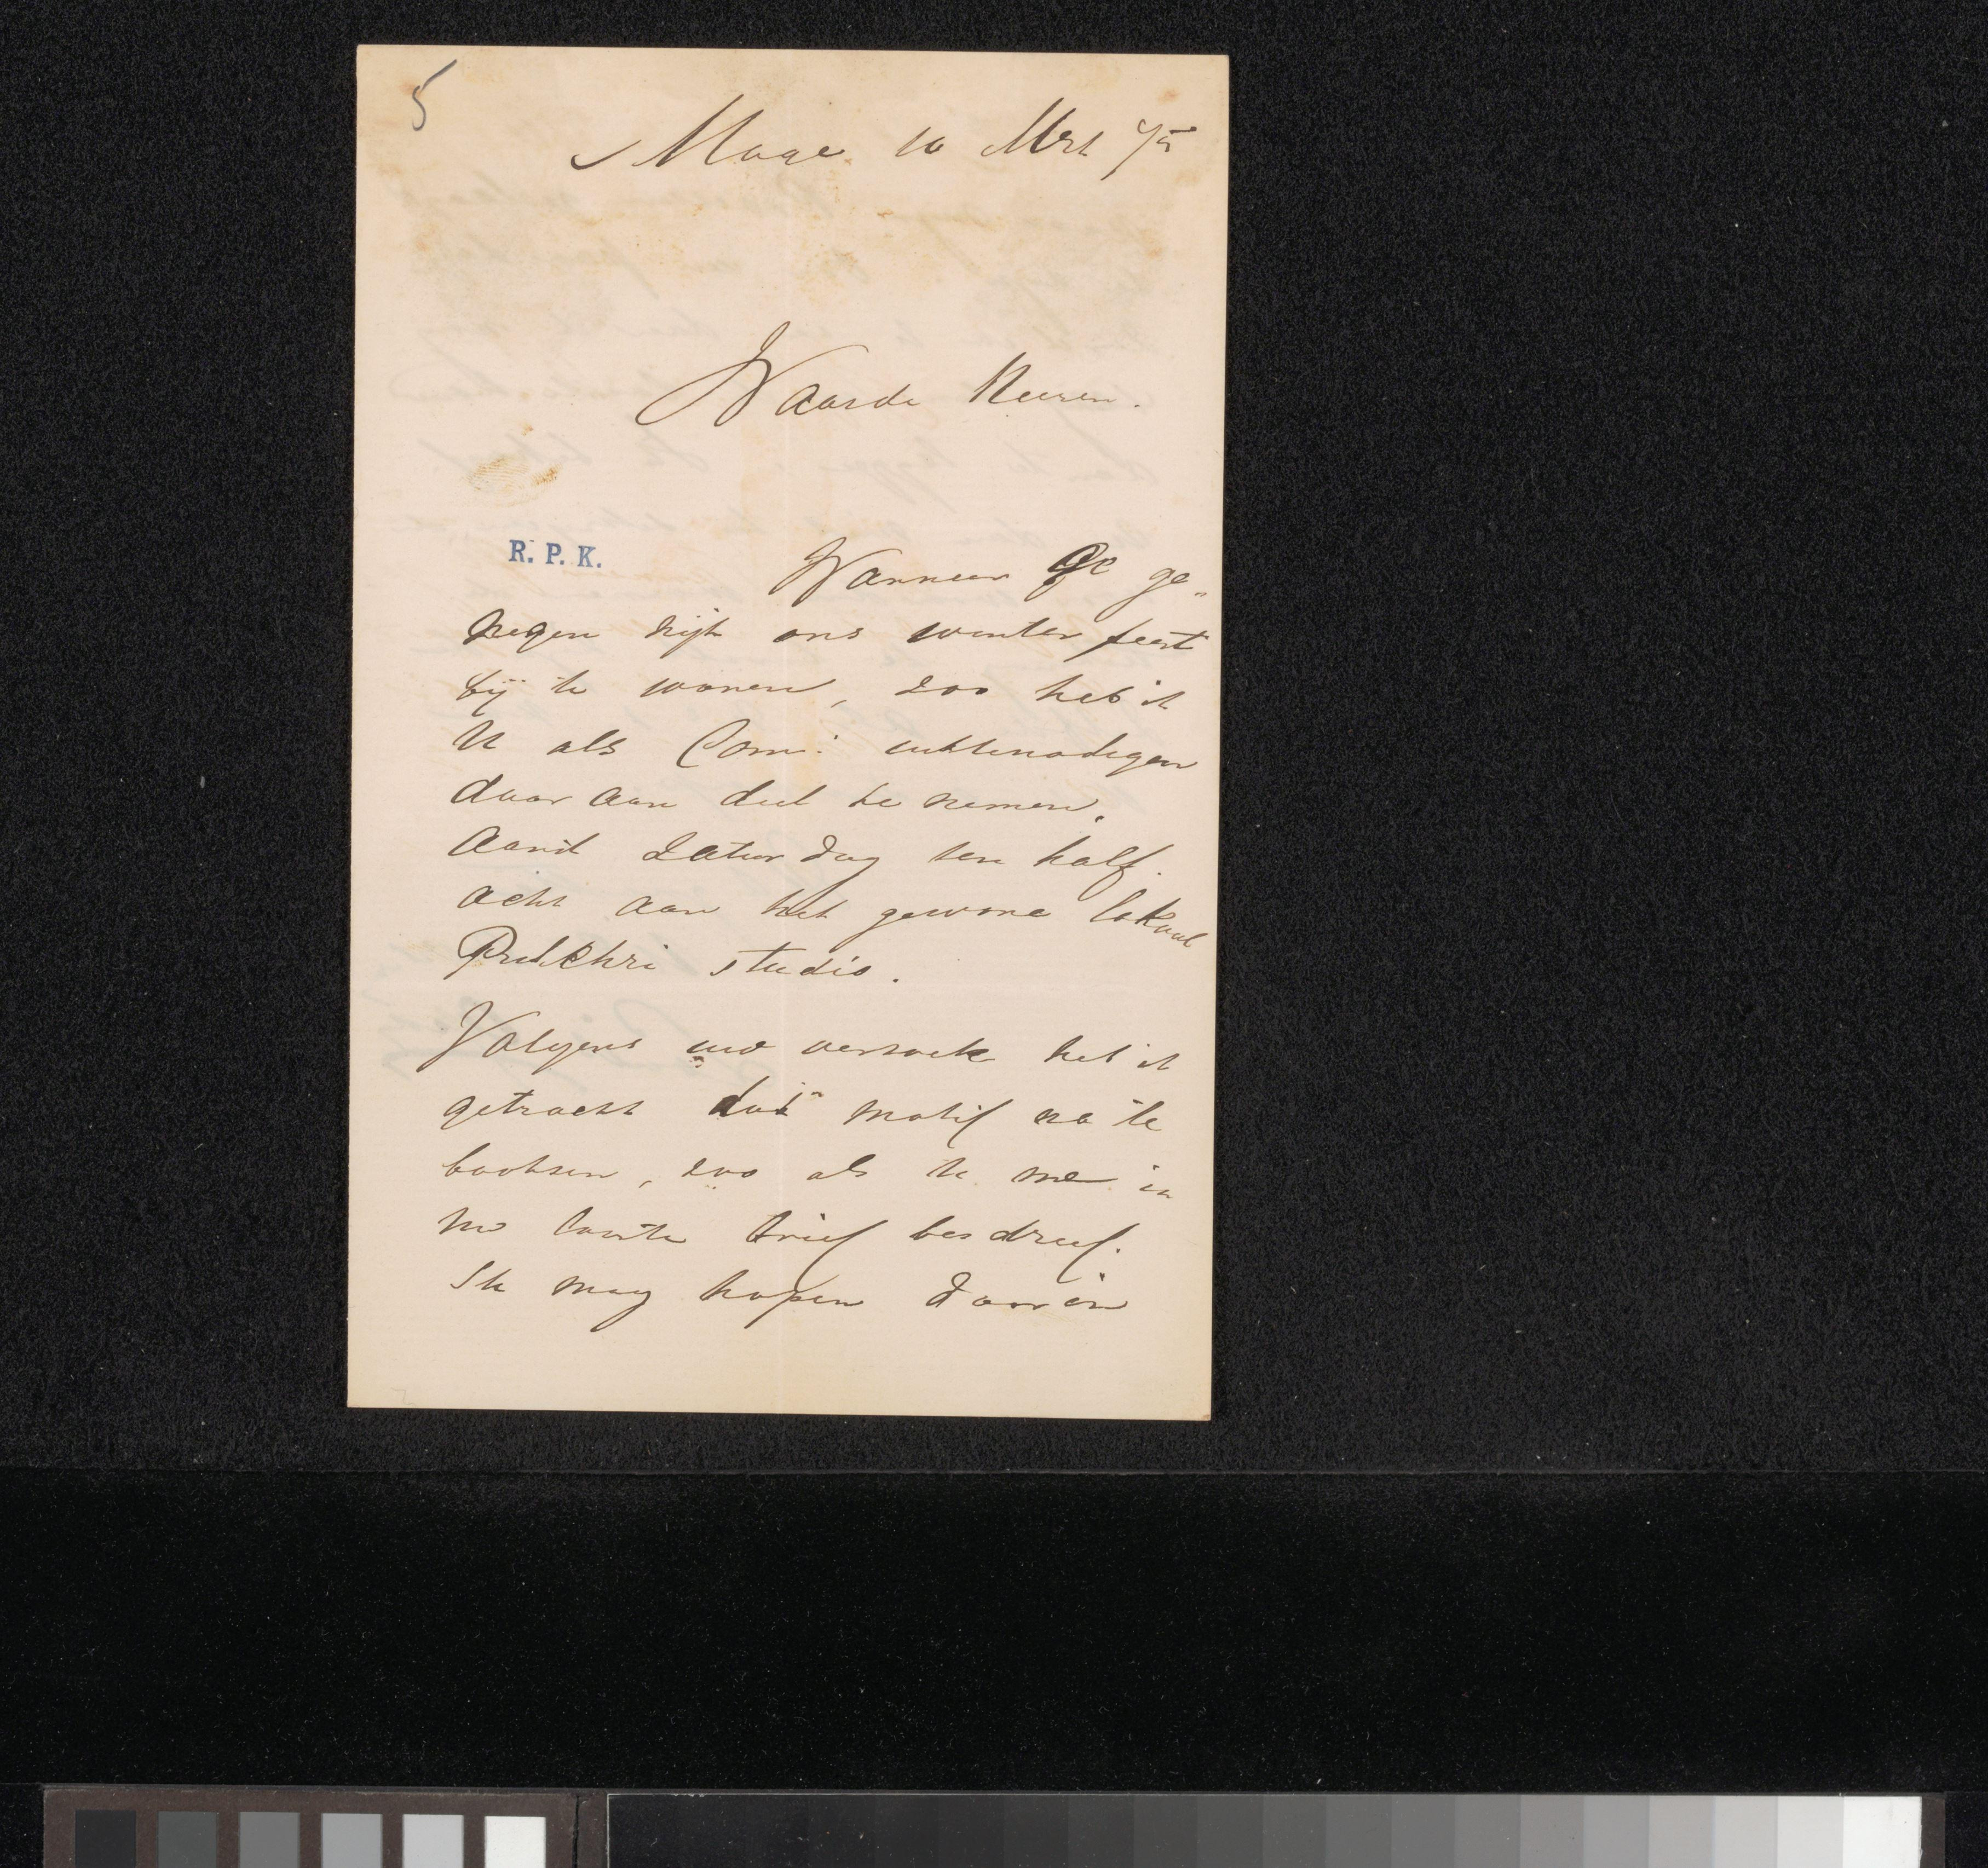 5
Hage 10 Mrt 75
Waarde Heeren.
R. P. K.
Wanneer Ge ge„
negen zijt ons winter feest
bij te wonen, zoo heb ik
U als Com: uittenodigen
daar aan deel te nemen.
Aanst Zaturdag ten half
acht aan het gewone lokaal
Pulchri studio.
Volgens uw verzoek heb ik
getracht dat motif na te
bootsen, zoo als U me in
Uw laatste brief bes dreef.
Ik mag hopen daar in